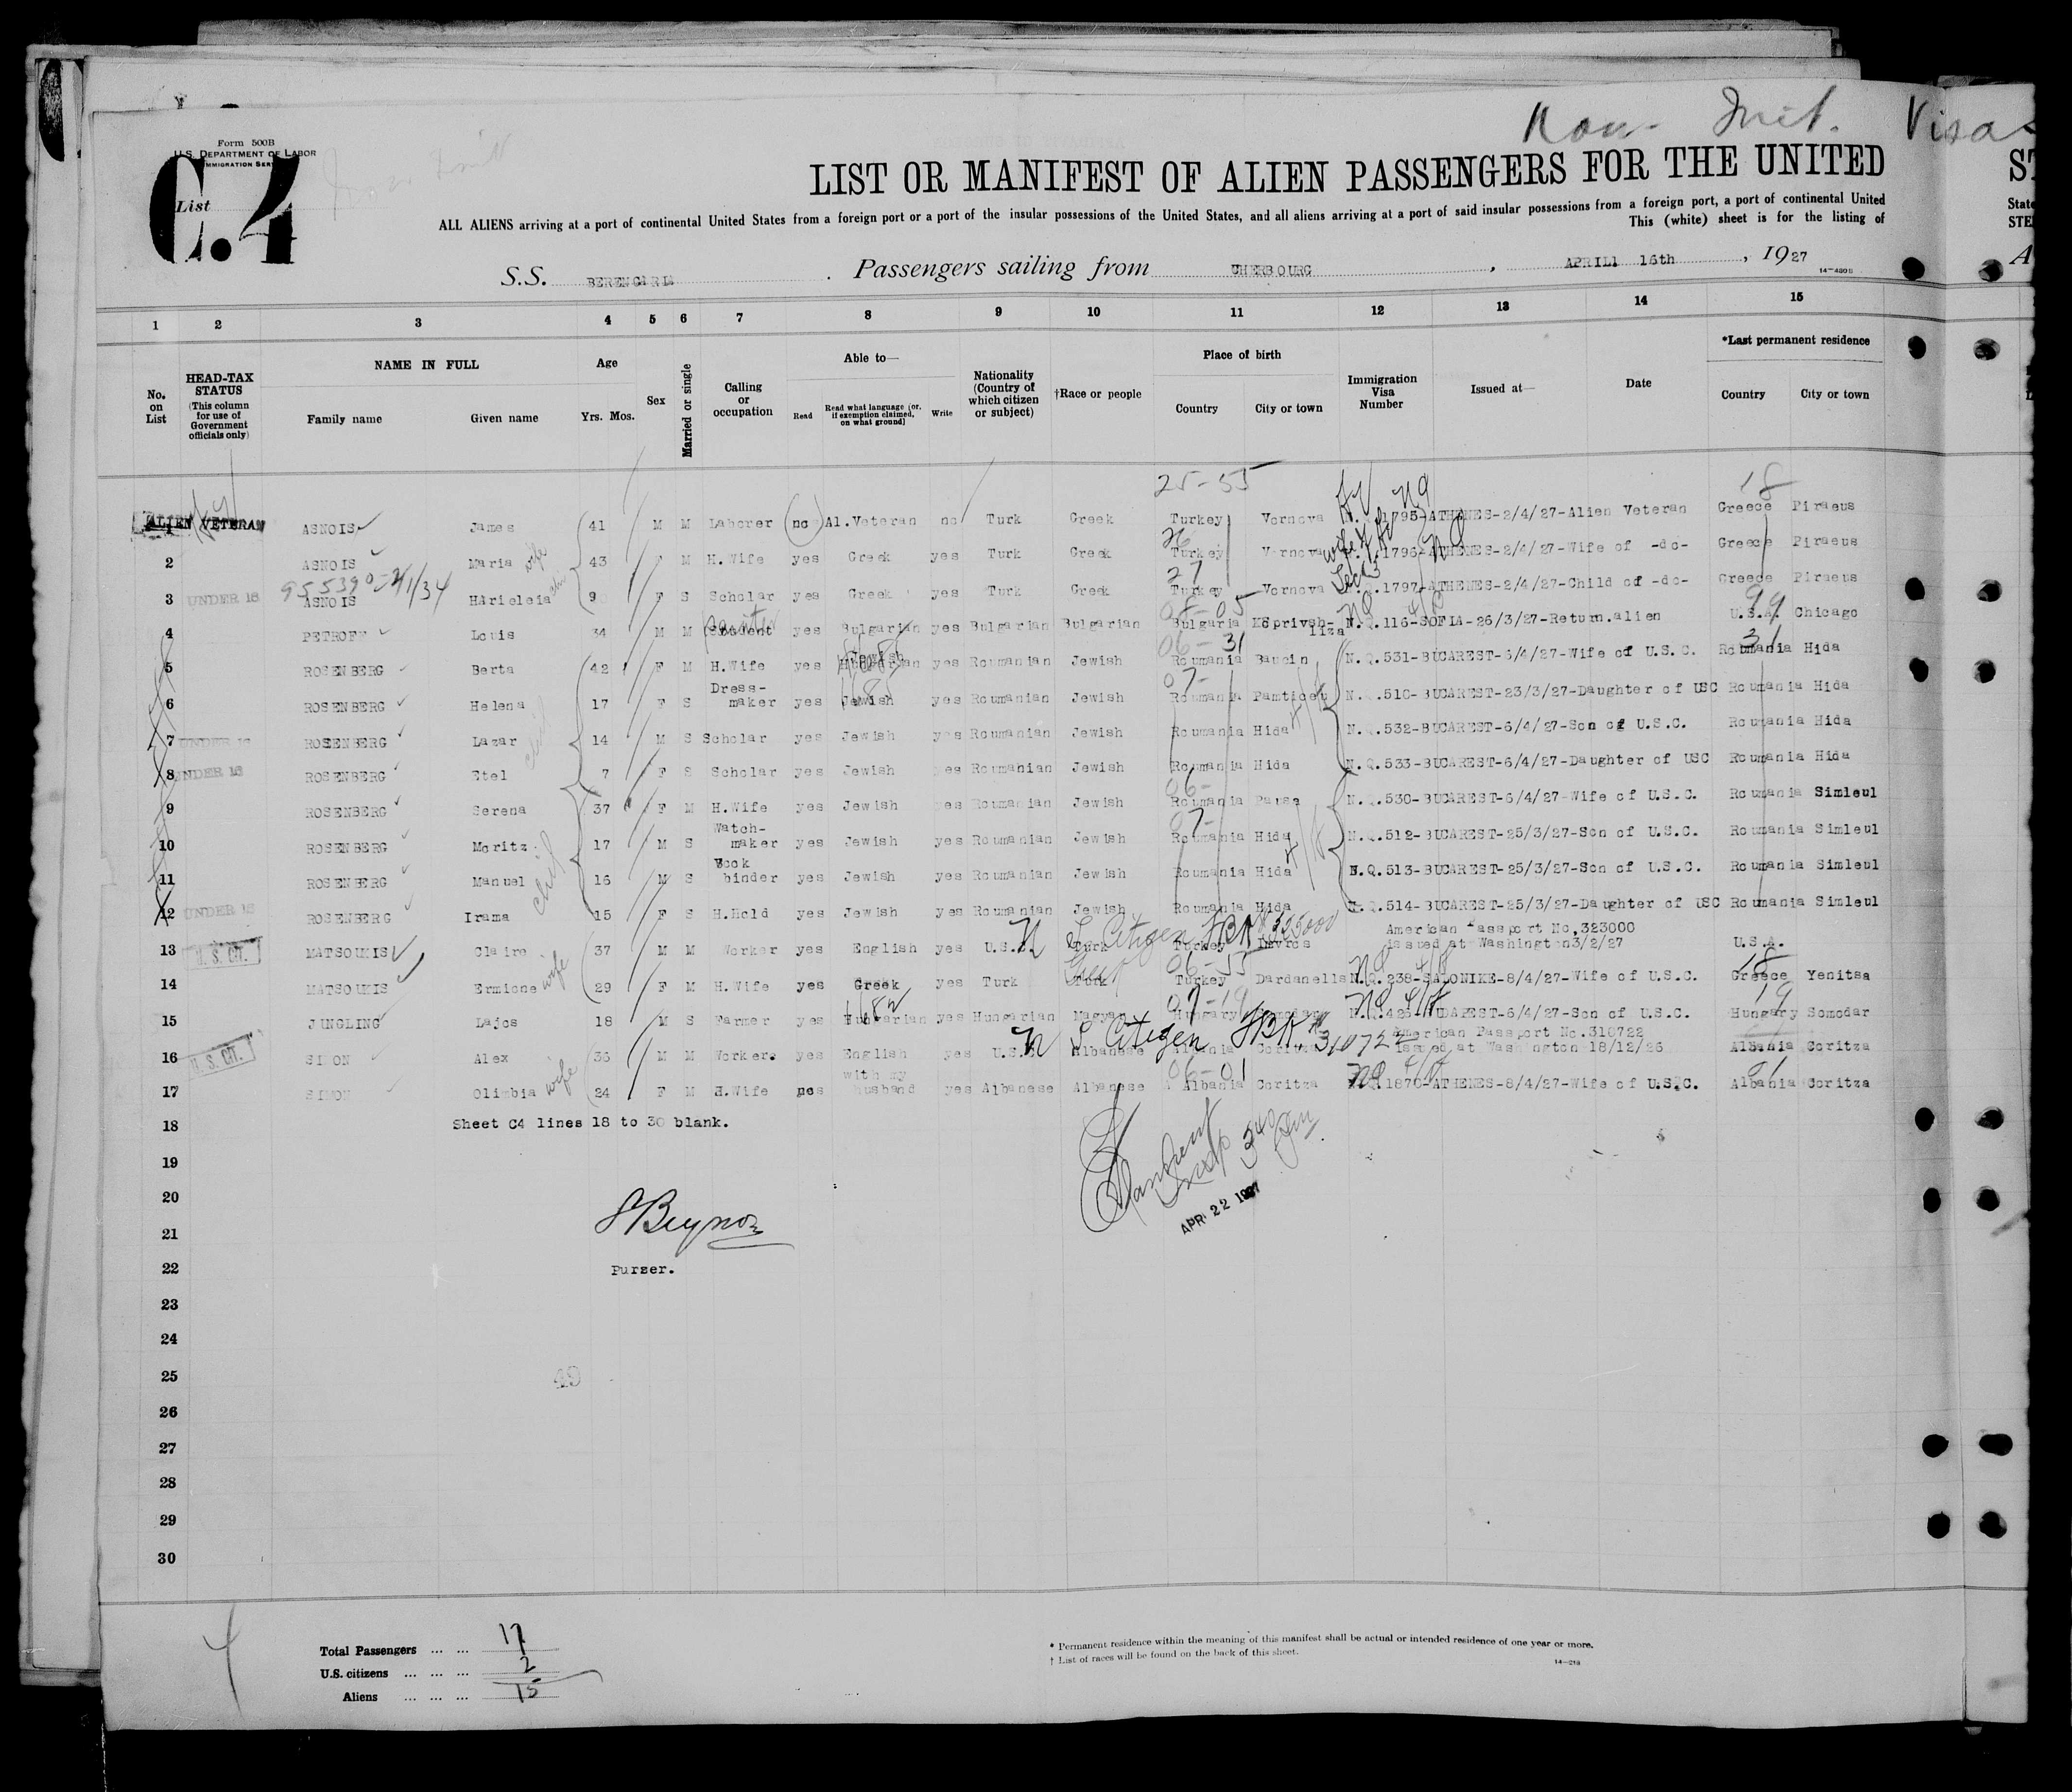 Non- Imt. Visas
Form 500B
U.S. DEPARTMENT OF LABOR
IMMIGRATION SER
List
C.4
LIST OR MANIFEST OF ALIEN PASSENGERS FOR THE UNITED
ALL ALIENS arriving at a port of continental United States from a foreign port or a port of the insular possessions of the United States, and all aliens arriving at a port of said insular possessions from a foreign port, a port of continental United
This (white) sheet is for the listing of
S.S. BERENGARIA . Passengers sailing from CHERBOURG , APRIL 16th , 1927
14-430B
1 2 3 4 5 6 7 8 9 10 11 12 13 14 15
No. on List
HEAD-TAX STATUS (This column for use of Government officials only)
NAME IN FULL
Family name Given name
Age
Yrs. Mos.
Sex
Married or single
Calling or occupation
Able to—
Read Read what language [or, if exemption claimed, on what ground] Write
Nationality (Country of which citizen or subject)
†Race or people
Place of birth
Country City or town
Immigration Visa Number
Issued at—
Date
*Last permanent residence
Country City or town
25-55 18
ALIEN VETERAN ASNOIS James 41 M M Laborer no Al.Veteran no Turk Greek Turkey Vornova 1795-ATHENES-2/4/27-Alien Veteran Greece Piraeus
2 ASNOIS Maria wife 43 F M H.Wife yes Greek yes Turk Greek Turkey Vornova 1796-ATHENES-2/4/27-Wife of -do- Greece Piraeus
3 UNDER 16 ASNOIS HArieleia 9 F S Scholar yes Greek yes Turk Greek Turkey Vornova N.Q.1797-ATHENES-2/4/27-Child of -do- Greece Piraeus
4 PETROFF Louis 34 M M Student yes Bulgarian yes Bulgarian Bulgarian Bulgaria KOprivsh-liza N.Q.116-SOFIA-26/3/27-Return.alien U.S.A. Chicago
5 ROSENBERG Berta 42 F M H.Wife yes Jewish yes Roumanian Jewish Roumania Baucin N.Q.531-BUCAREST-6/4/27-Wife of U.S.C. Roumania Hida
6 ROSENBERG Helena 17 F S Dress-maker yes Jewish yes Roumanian Jewish Roumania N.Q.510-BUCAREST-23/3/27-Daughter of USC Roumania Hida
7 UNDER 16 ROSENBERG Lazar 14 M S Scholar yes Jewish yes Roumanian Jewish Roumania Hida N.Q.532-BUCAREST-6/4/27-Son of U.S.C. Roumania Hida
8 UNDER 16 ROSENBERG Etel 7 F S Scholar yes Jewish yes Roumanian Jewish Roumania Hida N.Q.533-BUCAREST-6/4/27-Daughter of USC Roumania Hida
9 ROSENBERG Serena 37 F M H.Wife yes Jewish yes Roumanian Jewish Roumania N.Q.530-BUCAREST-6/4/27-Wife of U.S.C. Roumania Simleul
10 ROSENBERG Moritz 17 M S Watch-maker yes Jewish yes Roumanian Jewish Roumania Hida N.Q.512-BUCAREST-25/3/27-Son of U.S.C. Roumania Simleul
11 ROSENBERG Manuel 16 M S Book binder yes Jewish yes Roumanian Jewish Roumania Hida N.Q.513-BUCAREST-25/3/27-Son of U.S.C. Roumania Simleul
12 UNDER 16 ROSENBERG Irama 15 F S H.Hold yes Jewish yes Roumanian Jewish Roumania Hida N.Q.514-BUCAREST-25/3/27-Daughter of USC Roumania Simleul
American Passport No,323000
13 U.S. CIT. MATSOUKIS Claire 37 M M Worker yes English yes U.S. Turk Turkey issued at Washington3/2/27 U.S.A.
14 MATSOUKIS Ermione wife 29 F M H.Wife yes Greek yes Turk Turk Turkey Dardanells N.Q.238-SALONIKE-8/4/27-Wife of U.S.C. Greece Yenitsa
15 JUNGLING Lajos 18 M S Farmer yes Hungarian yes Hungarian Magyar Hungary Somodar BUDAPEST-6/4/27-Son of U.S.C. Hungary Somodar
American Passport No.310722
16 U.S. CIT. SIMON Alex 36 M M Worker. yes English yes U.S. Albanese Albania Coritza issued at Washington 18/12/26 Albania Coritza
17 SIMON Olimbia wife 24 F M H.Wife with my husband yes Albanese Albanese Albania Coritza N.Q.1870-ATHENES-8/4/27-Wife of U.S.C. Albania Coritza
18 Sheet C4 lines 18 to 30 blank.
19
20
APR 22 1927
21
22 Purser.
23
24
25
26
27
28
29
30
Total Passengers ... ... 17
U.S. citizens ... ... ... 2
Aliens ... ... ... 15
* Permanent residence within the meaning of this manifest shall be actual or intended residence of one year or more.
† List of races will be found on the back of this sheet.
14-218